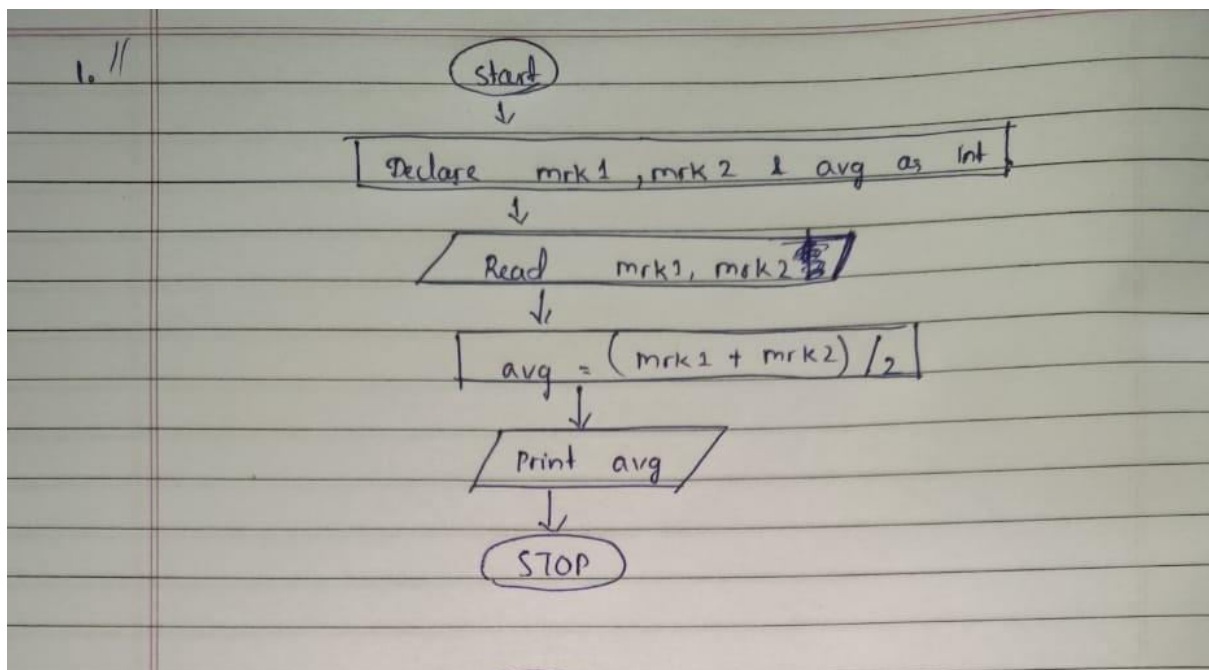 1. //
Start
Declare mrk1, mrk2 & avg as Int
Read mrk1, mrk2
avg = (mrk1 + mrk2) /2
Print avg
STOP